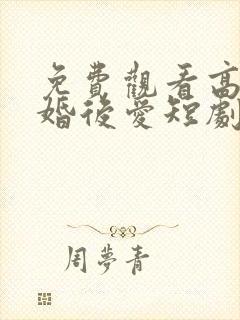 免費觀看高
婚後愛短劇
周夢青